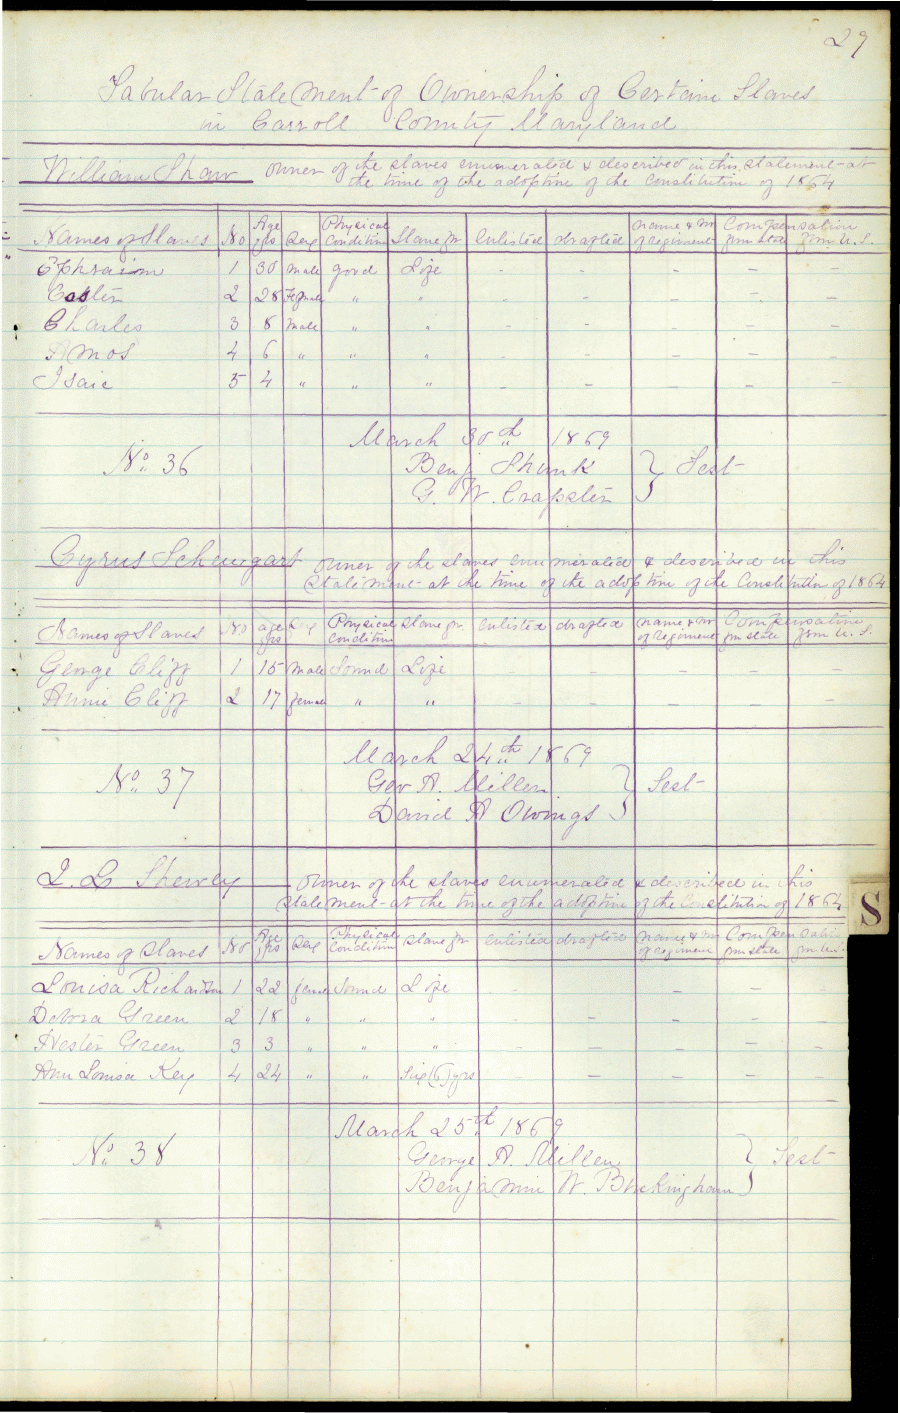 29
Tabular Statement of Ownership of Certain Slaves
in Carroll County Maryland
William Shaw owner of the slaves enumerated & described in this statement at
the time of the adoption of the Constitution of 1864
Names of Slaves No Age yrs Sex Physical condition Slave for enlisted drafted name & No of regiment Compensation from State from U. S.
Ephraim 1 30 male good Life - - - - -
2 28 Female " " - - - - -
Charles 3 8 male " " - - - - -
Amos 4 6 " " " - - - - -
Isaie 5 4 " " " - - - - -
March 30th 1869
No. 36 Benj Shunk } Test
G. W. Crapster
Cyrus owner of the slaves enumerated & described in this
statement at the time of the adoption of the Constitution of 1864
Names of Slaves No age yrs Sex Physical condition slave for enlisted drafted name & No of regiment Compensation from state from U. S.
George Cliff 1 15 Male Sound Life - - - - -
Annie Cliff 2 17 female " " - - - - -
March 24th 1869
No. 37 Geo A. Miller } Test
David A Owings
owner of the slaves enumerated & described in this
statement at the time of the adoption of the Constitution of 1864
Names of Slaves No Age yrs Sex Physical condition slave for enlisted drafted name & No of regiment Compensation from state from U.S.
S
Louisa Richardson 1 22 female Sound Life - - - - -
Debora Green 2 18 " " " - - - - -
Hester Green 3 3 " " " - - - - -
Ann Louisa Key 4 24 " " Six (6) yrs - - - -
March 25th 1869
No. 38 George A. Miller } Test
Benjamin W. Buckingham